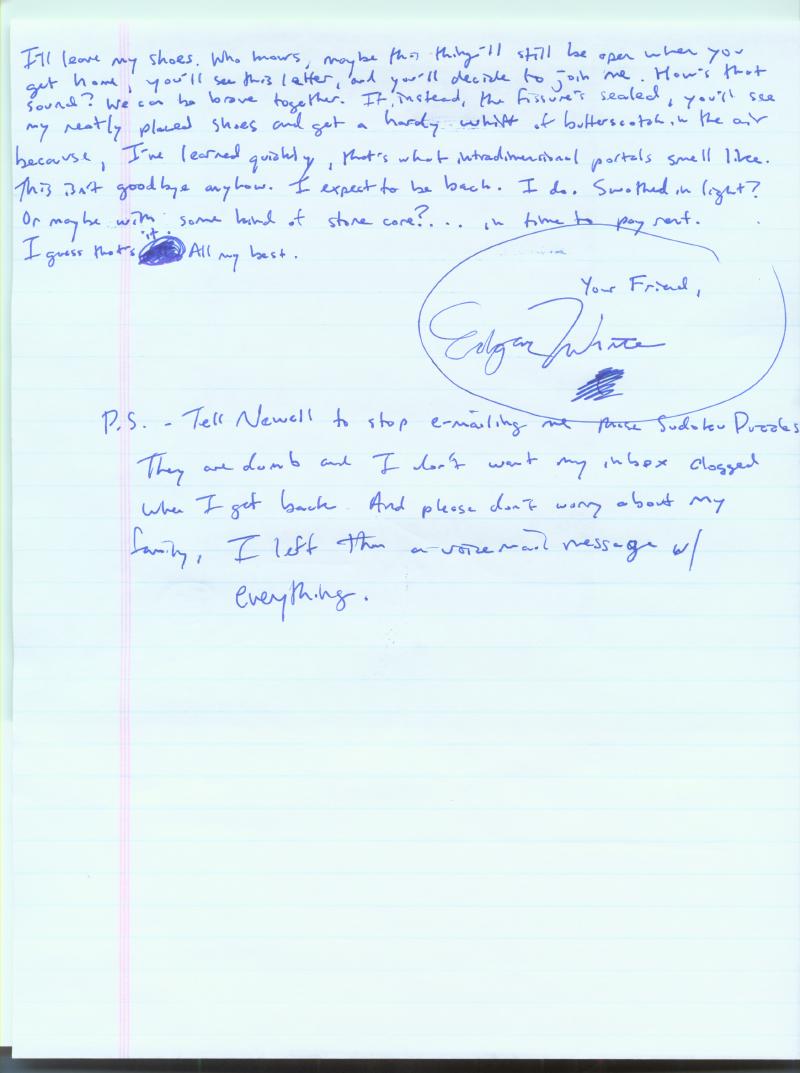 I'll leave my shoes. Who knows, maybe this thing'll still be open when you
get home, you'll see this letter, and you'll decide to join me. How's that
sound? We can be brave together. If, instead, the fissure's sealed, you'll see
my neatly placed shoes and get a hardy whiff of butterscotch in the air
because, I've learned quickly, that's what intradimensional portals smell like.
This isn't goodbye anyhow. I expect to be back. I do. Swathed in light?
Or maybe with some kind of stone core?... in time to pay rent.
I guess that's it. All my best.
Your Friend,
Edgar White
P.S. - Tell Newell to stop e-mailing me those Sudoku Puzzles
They are dumb and I don't want my inbox clogged
when I get back. And please don't worry about my
family, I left them a voicemail message w/
everything.